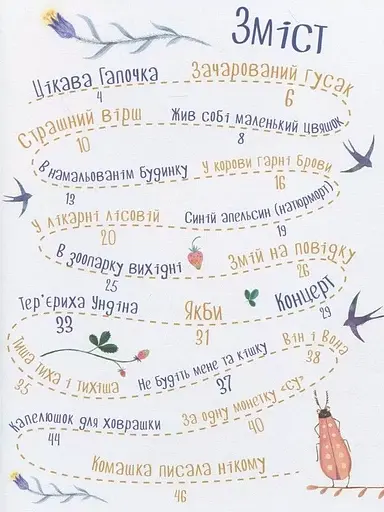 Зміст
Цікава Гапочка
4
Зачарований гусак
6
Страшний вірш
10
Жив собі маленький цвяшок
8
В намальованім будинку
13
У корови гарні брови
16
У лікарні лісовій
20
Синій апельсин (натюрморт)
19
В зоопарку вихідні
25
Змій на повідку
26
Тер'єриха Ундіна
33
Якби
31
Концерт
29
Тиша тиха і тихіша
35
Не будіть мене та кішку
37
Він і Вона
38
Капелюшок для ховрашки
44
За одну монетку «су»
40
Комашка писала нікому
46